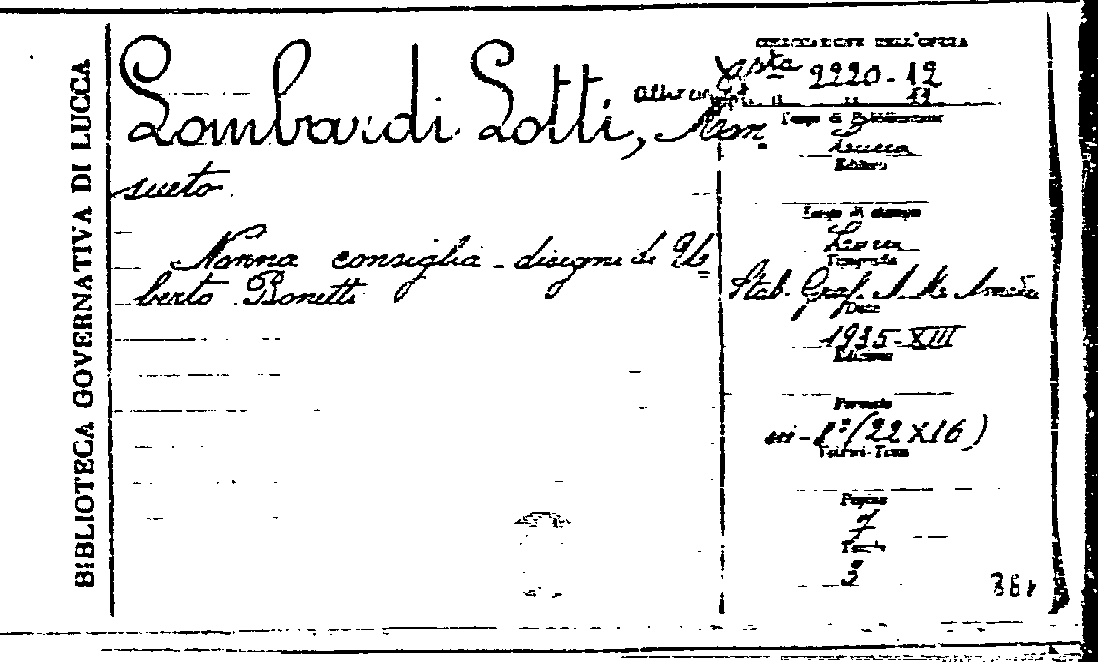 BIBLIOTECA GOVERNATIVA DI LUCCA
Lombardi Lotti, Man=
sueto.
Nonna consiglia - disegni di Um=
berto Bonetti
COLLOCAZIONE DELL'OPERA
2220-12
11
Luogo di Pubblicazione
Lucca
Editore
Luogo di stampa
Lucca
Tipografia
Stab. Graf.
Data
1935-XIII
Edizione
Formato
in-8º (22 X 16)
Pagine
7
Tavole
3